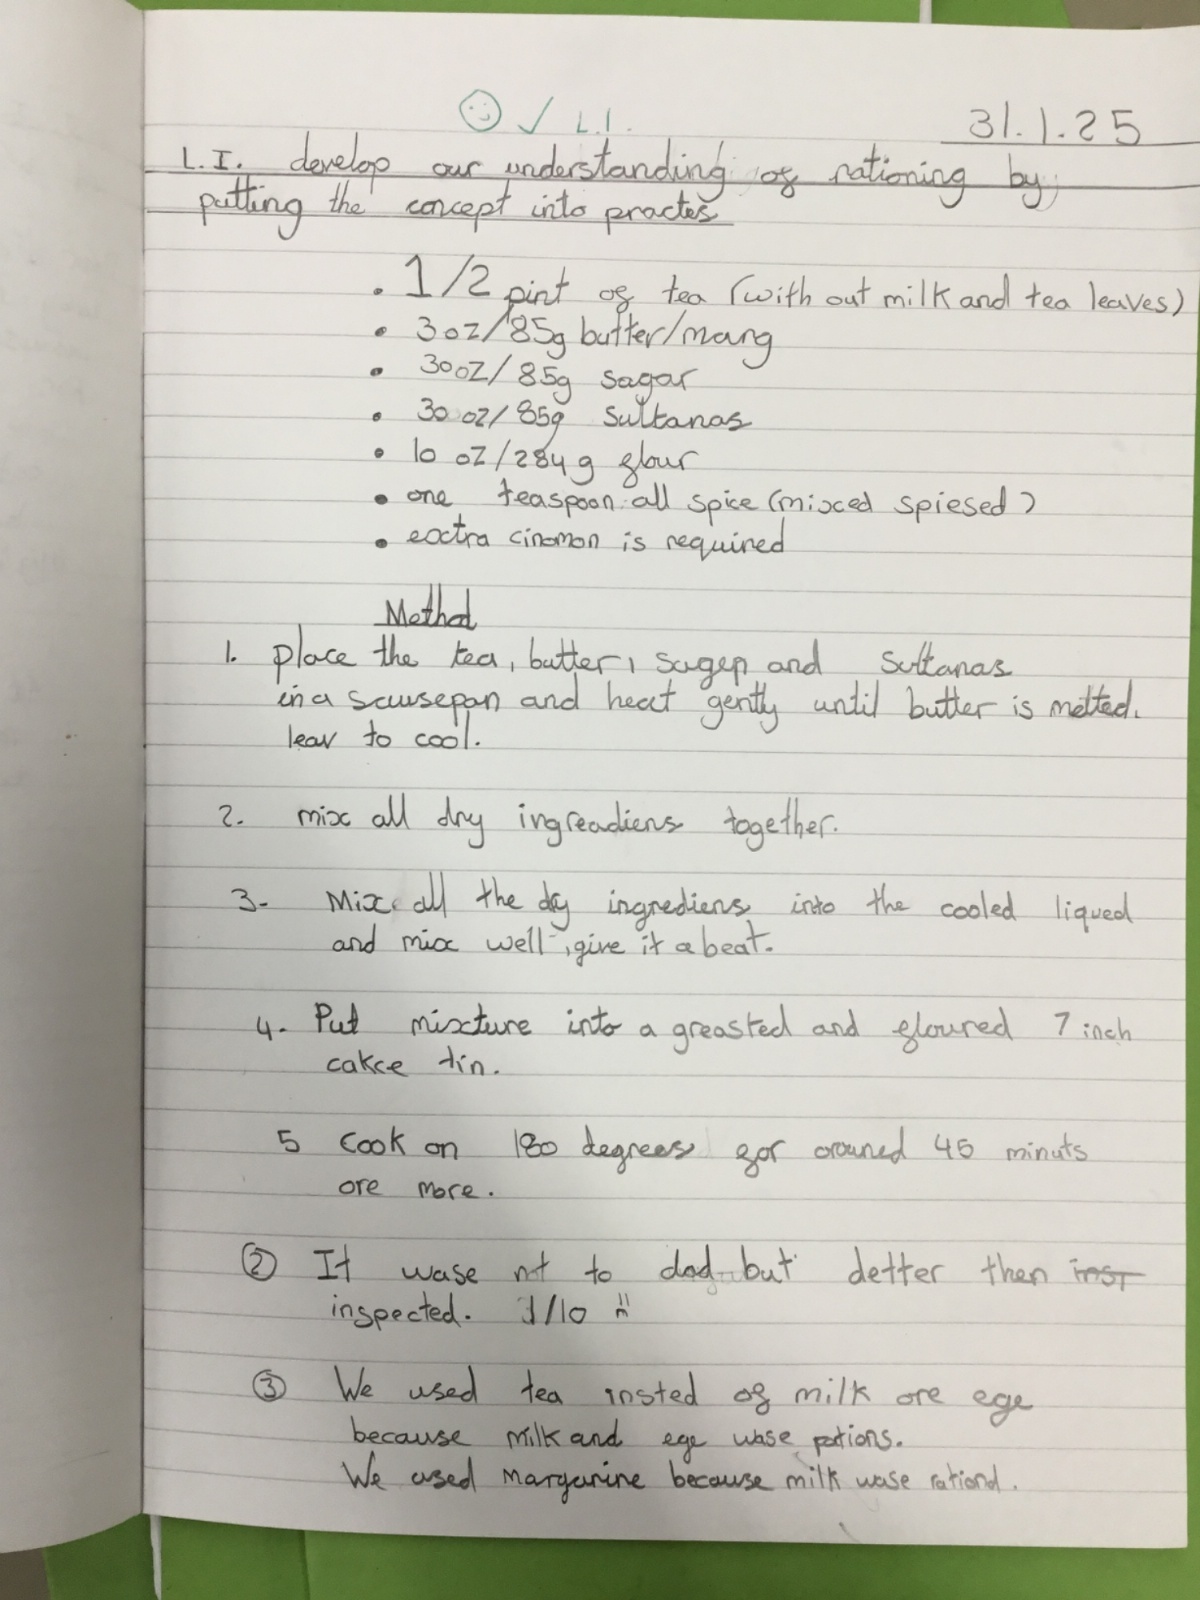 ☺ ✓ L.I.
31.1.25
L.I. develop our understanding of rationing by
putting the concept into practes
• 1/2 pint of tea (with out milk and tea leaves)
• 3oz/85g butter/marg
• 30oz/85g sagar
• 30 oz/85g Sultanas
• 10 oz/284g flour
• one teaspoon all spice (mixced spiesed)
• extra cinomon is required
Method
1. place the tea, butter, and Sultanas
in a scusepan and heat gently until butter is melted.
leav to cool.
2. mix all dry ingreadiens together.
3- Mix all the dry ingrediens into the cooled liqued
and mix well, give it a beat.
4- Put mixture into a greasted and floured 7 inch
cakce tin.
5 Cook on 180 degrees for orouned 45 minuts
ore more.
② It wase not to dad but detter then
inspected. 1/10
③ We used tea insted of milk ore ege
because milk and ege wase rations.
We used Margarine because milk wase rationd.